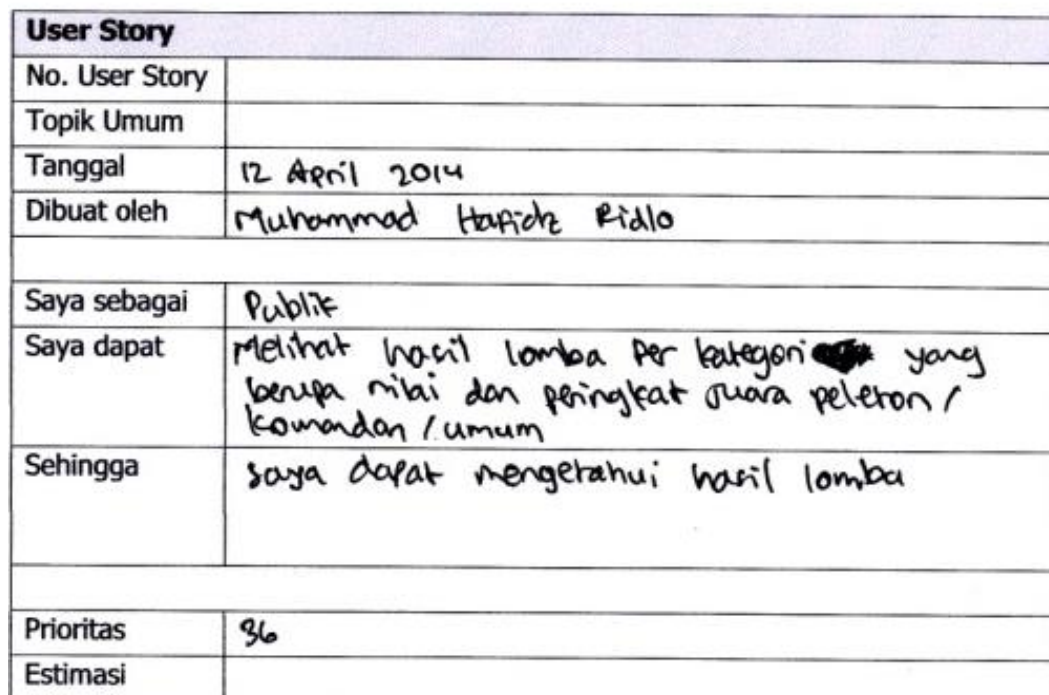 User Story
No. User Story
Topik Umum
Tanggal 12 April 2014
Dibuat oleh Muhammad Hafidz Ridlo
Saya sebagai Publik
Saya dapat Melihat hasil lomba per kategori yang
berupa nilai dan peringkat juara peleton /
komandan / umum
Sehingga saya dapat mengetahui hasil lomba
Prioritas 36
Estimasi